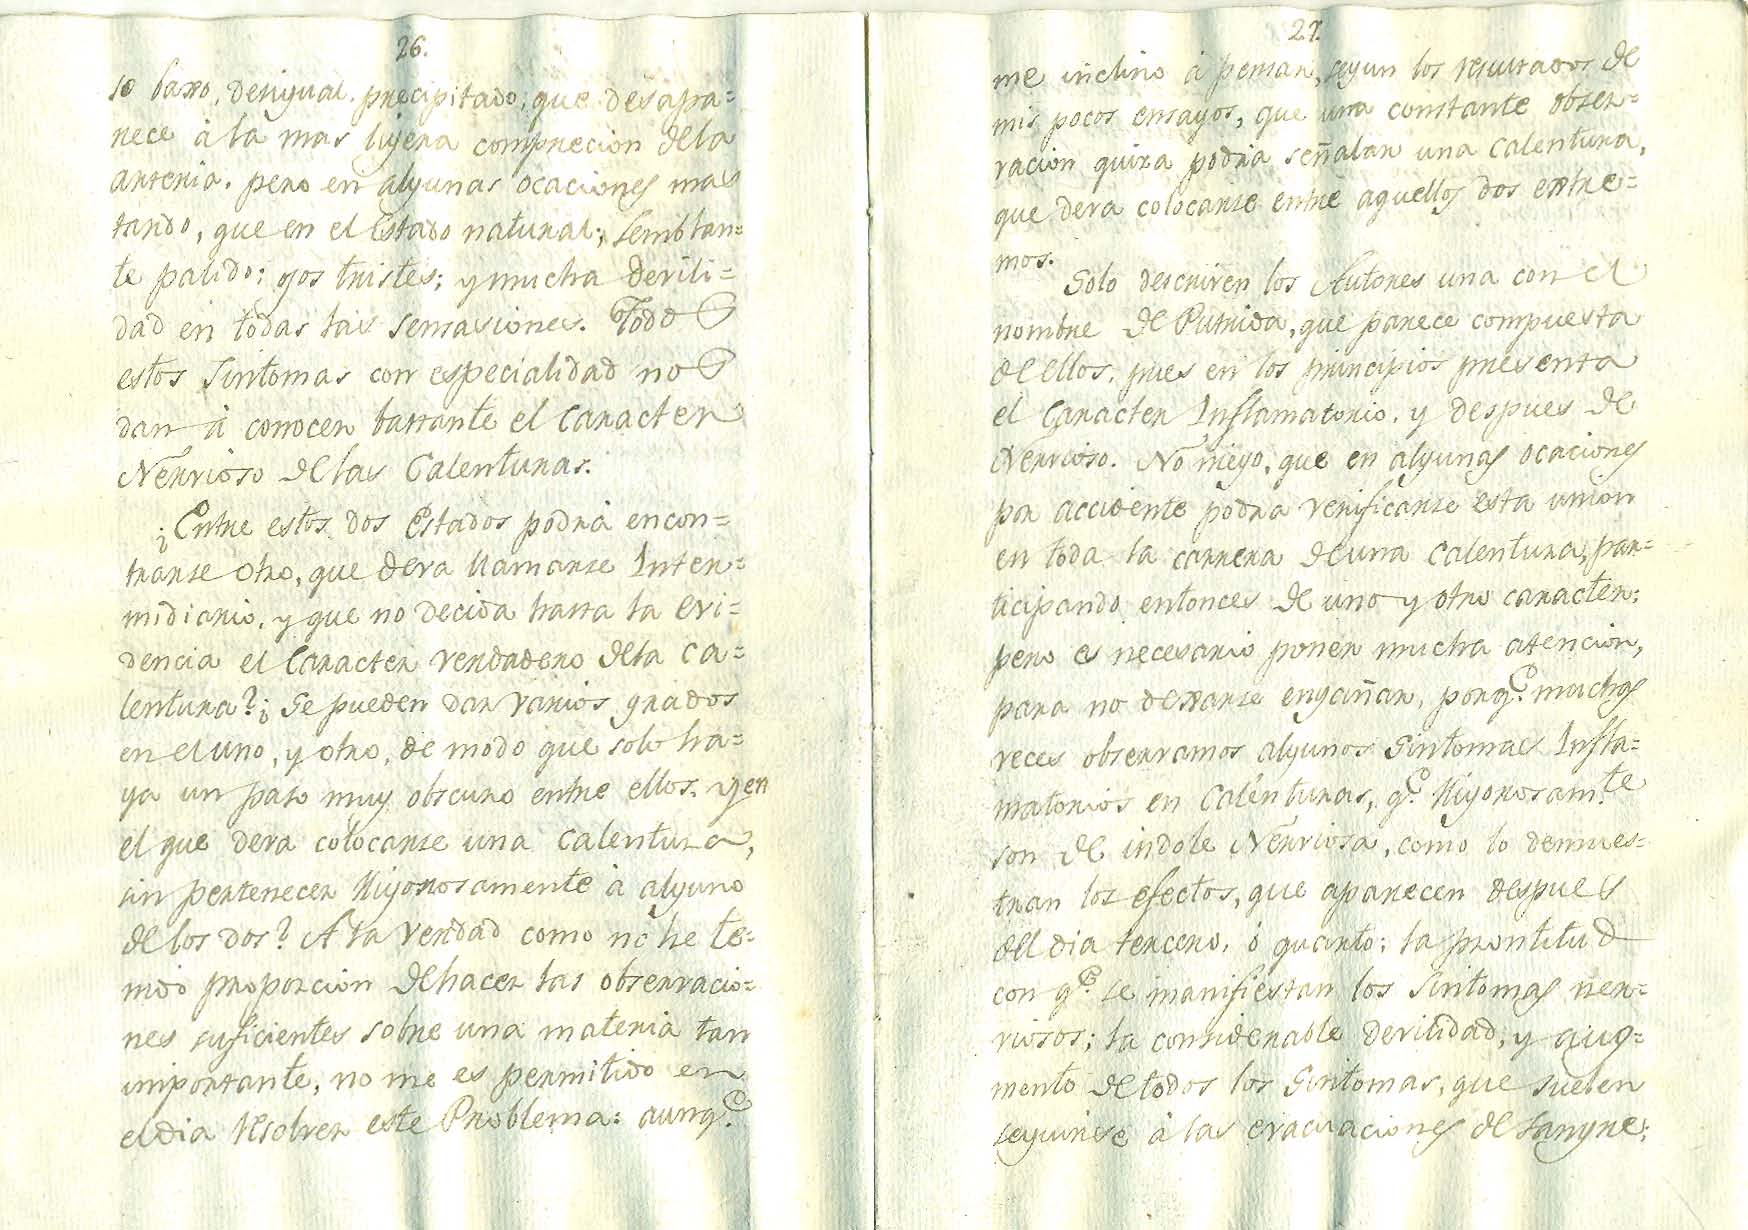 26.
so baxo, desigual, precipitado, que desapa=
rece à la mas lijera comprecion dela
arteria. pero en algunas ocaciones mas
tardo, que en el Estado natural; semblan=
te palido; ojos tristes; y mucha devili=
dad en todas las sensasiones. Todos
estos sintomas con especialidad nos
dan à conocer bastante el Caracter
Nervioso de las Calenturas.
¿Entre estos dos Estados podrà encon=
trarse otro, que deva llamarse Inter=
midiario, y que no decida hasta la evi=
dencia el Caracter verdadero dela Ca=
lentura? ¿Se pueden dar varios grados
en el uno, y otro, de modo que solo ha=
ya un paso muy obscuro entre ellos, y en
el que deva colocarse una Calentura,
sin pertenecer Rigorosamente à alguno
de los dos? A la verdad como no he te=
nido proporcion de hacer las observacio=
nes suficientes sobre una materia tan
importante, no me es permitido en
el dia Resolver este Problema: aunq.e
27.
me inclino à pensar, segun los resultados de
mis pocos ensayos, que una constante obser=
vacion quiza podria señalar una Calentura,
que deva colocarse entre aquellos dos extre=
mos.
Solo descriven los Autores una con el
nombre de Putrida, que parece compuesta
de ellos, pues en los principios presenta
el Caracter Inflamatorio, y despues de
Nervioso. No niego, que en algunas ocaciones
por accidente podra verificarse esta union
en toda la carrera de una Calentura, par=
ticipando entonces de uno y otro caracter;
pero es necesario poner mucha atencion,
para no dexarse engañar, porq.e muchas
veces observamos algunos Sintomas Infla=
matorios en Calenturas, q.e Rigorosam.te
son de indole Nerviosa, como lo demues=
tran los efectos, que aparecen despues
del dia tercero, ò quarto; la prontitud
con q.e se manifiestan los Sintomas ner=
viosos; la considerable devilidad, y aug=
mento de todos los Sintomas, que suelen
seguirse à las evacuaciones de sangre;